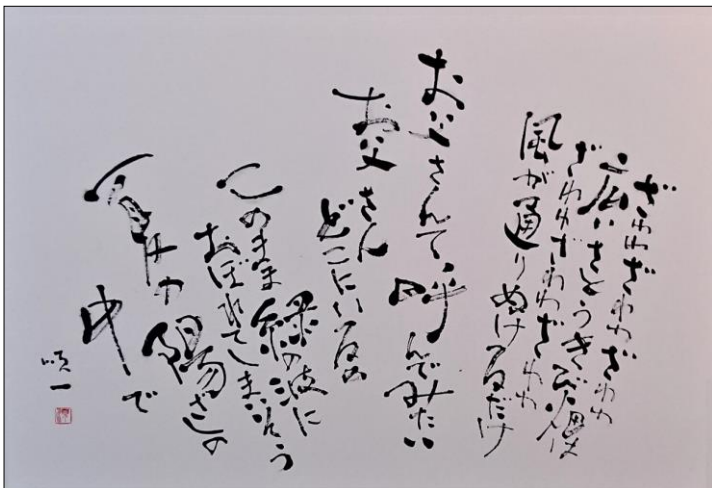 ざわわざわわざわわ
広いさとうきび畑は
ざわわざわわざわわ
風が通りぬけるだけ
お父さんて呼んでみたい
お父さん
どこにいるの
このまま緑の波に
おぼれてしまいそう
夏の陽ざしの
中で
順一